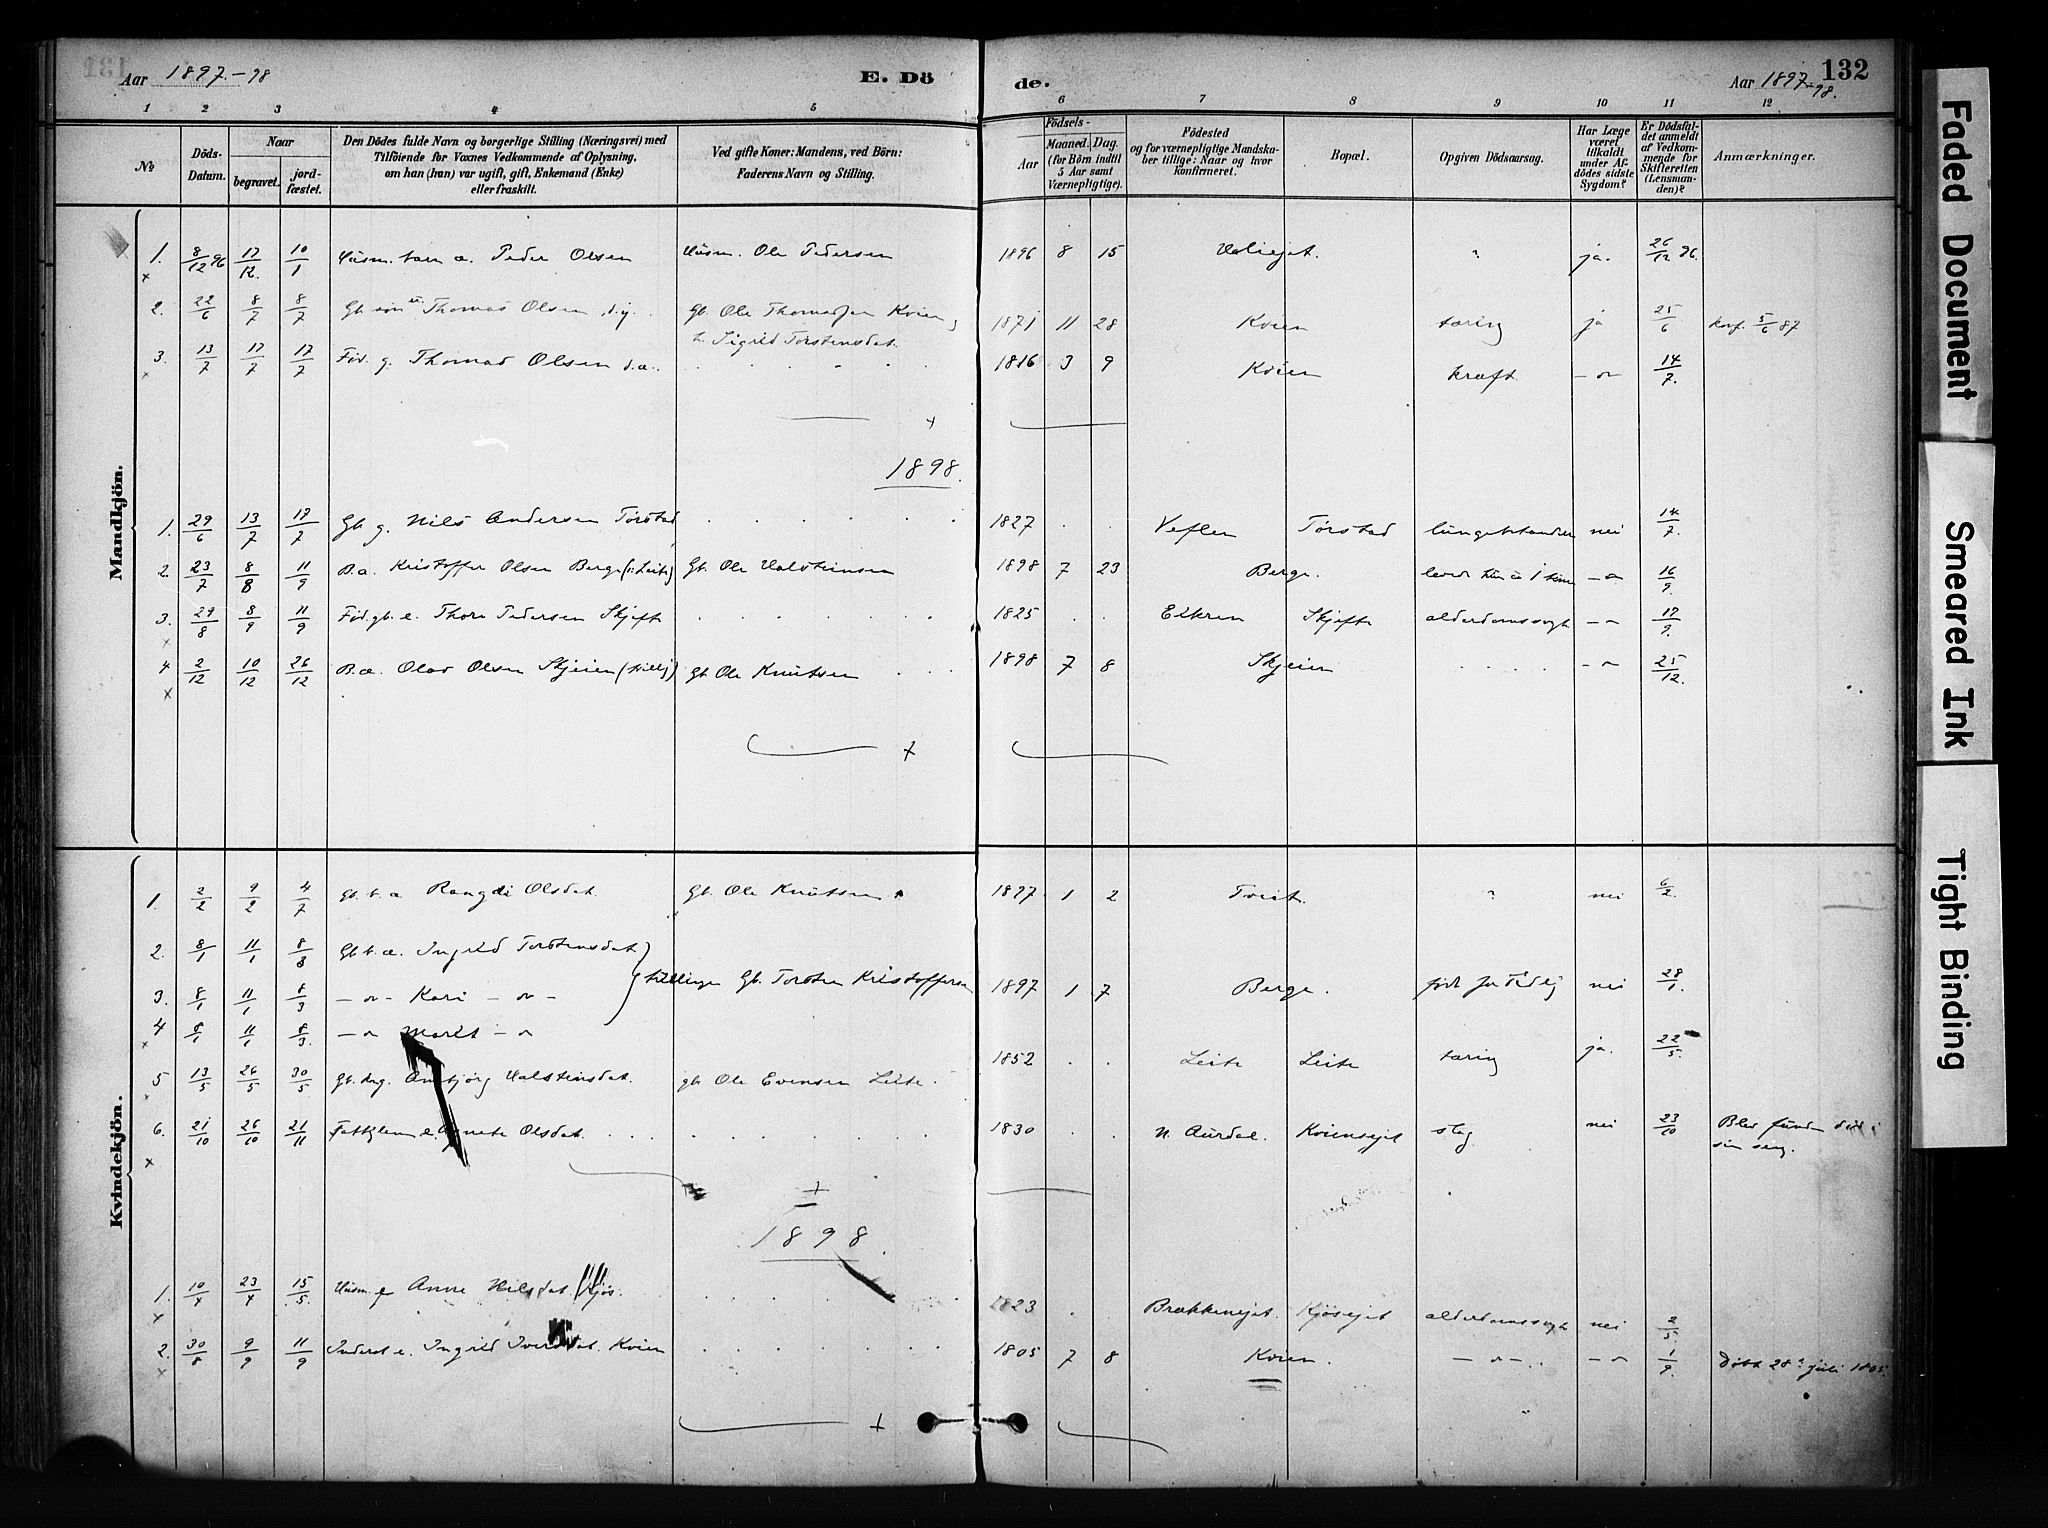 131 Aar 1897.-98 E. Dö de. Aar 1897.-98. 132
1 2 3 4 5 6 7 8 9 10 11 12
№ Döds-Datum. Naar begravet. jord-fæstet.
Den Dödes fulde Navn og borgerlige Stilling (Næringsvei) med
Tilföiende for Voxnes Vedkommende af Oplysning,
om han (hun) var ugift, gift, Enkemand (Enke)
eller fraskilt.
Ved gifte Koner: Mandens, ved Börn:
Faderens Navn og Stilling.
Födsels-
Aar Maaned. Dag.
(for Börn indtil
5 Aar samt
Værnepligtige).
Födested
og for værnepligtige Mandska-
ber tillige: Naar og hvor
konfirmeret.
Bopæl.
Opgiven Dödsaarsag.
Har Læge
været
tilkaldt
under Af-
dödes sidste
Sygdom?
Er Dödsfal-
det anmeldt
af Vedkom-
mende for
Skifteretten
(Lensman-
den)?
Anmærkninger.
Mandkjön.
1. 8/12 96 17/12. 10/1 Husm. barn a. Peder Olsen Husm. Ole Pedersen 1896 8 15 ja. 26/12 96.
2. 22/6 8/7 8/7 Gb. søn u. Thomas Olsen d.y. Gb. Ole Thomassen Kvien 1871 11 28 Kvien tæring ja 25/6 konf. 5/6 87
Sigrid Torstensdat.
3. 13/7 17/7 17/7 Fød. g. Thomas Olsen d.æ. 1816 3 9 Kvien kræft - " - 14/7.
1898.
1. 29/6 13/7 17/7 Gb. g. Nils Andersen Tørstad 1827 Veflen Tørstad nei 14/7.
2. 23/7 8/8 11/9 B.a. Kristoffer Olsen Berge Gb. Ole Halsteinsen 1898 7 23 Berge. levede kun 1 time - " 16/9.
3. 29/8 8/9 11/9 Fød. gb. e. Thore Pedersen Skjefte 1825 Eikren Skjefte alderdomssvagh - " 17/9.
4 2/12 10/12 26/12 B.a. Olav Olsen Skjeien (tvilling) Gb. Ole Knutsen 1898 7 8 Skjeien - " 25/12.
Kvindekjön.
1. 2/2 9/2 4/7 Gb. b. a Rangdi Olsdat. Gb. Ole Knutsen 1897 1 2 Tveit. " nei 6/2.
2. 8/1 11/1 8/3 Gb. b. a. Ingrid Torstensdat
3. 8/1 11/1 8/3 - " - Kari - " - trillinger Gb. Torsten Kristoffersen 1897 1 7 Berge. født for tidlig nei 28/1.
4 8/1 11/1 8/3. - " Marit - "
5 13/5 26/5 30/5 Gb. Halsteinsdat. gb. Ole Evensen Leite. 1852 Leite Leite tæring ja. 22/5.
6. 21/10 26/10 21/11 Fattiglem e. Agnete Olsdat. 1830 N. Aurdal. Kvienseiet slag nei 23/10 Blev funden død i
sin seng.
1898.
1. 10/4 23/4 15/5. Husm. Anne Nilsdat. Kjøs. 1823 Brækkeneiet. Kjøseiet alderdomssvagh nei 2/5.
2. 30/8 9/9 11/9 Inderst e. Ingrid Iversdat. Kvien 1805 7 8 Kvien. - " - - " 1/9. Døbt 28de juli 1805.
Faded Document
Smeared Ink
Tight Binding